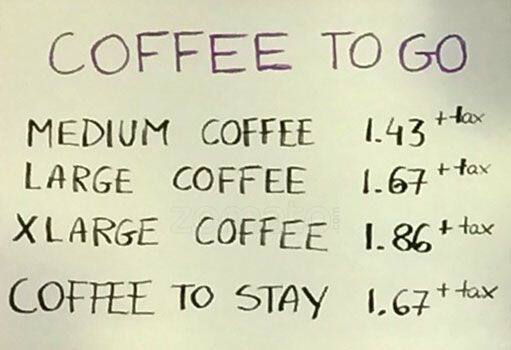 COFFEE TO GO
MEDIUM COFFEE 1.43 + tax
LARGE COFFEE 1.67 + tax
XLARGE COFFEE 1.86 + tax
COFFEE TO STAY 1.67 + tax